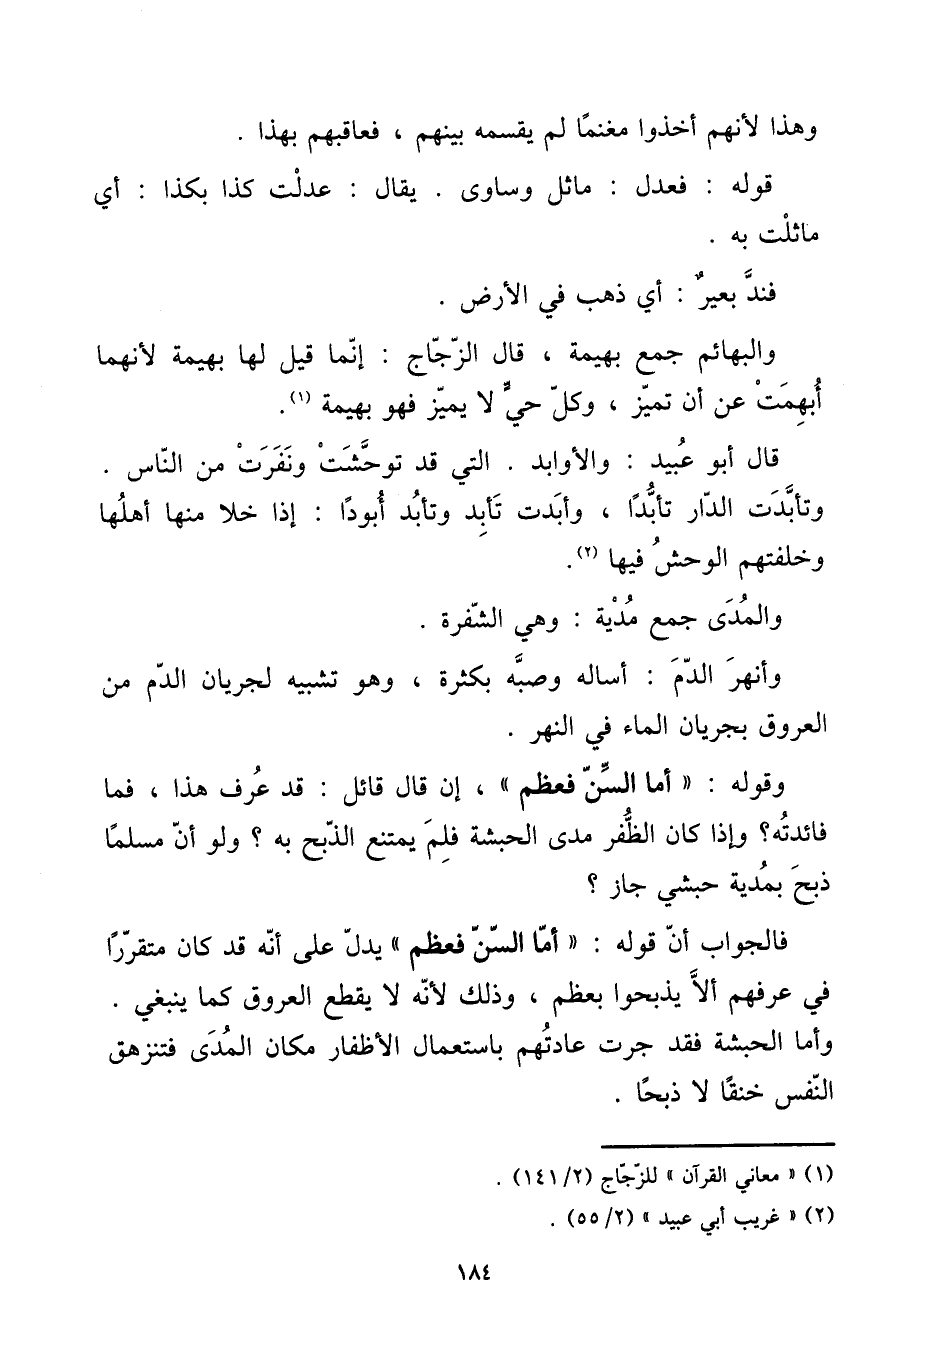 وهذا لأنهم أخذوا مغنمًا لم يقسمه بينهم ، فعاقبهم بهذا .
قوله : فعدل : ماثل وساوى . يقال : عدلْت كذا بكذا : أي
ماثلْت به .
فندَّ بعيرٌ : أي ذهب في الأرض .
والبهائم جمع بهيمة ، قال الزّجّاج : إنّما قيل لها بهيمة لأنهما
أُبهِمَتْ عن أن تميّز ، وكلّ حيٍّ لا يميّز فهو بهيمة (١).
قال أبو عُبيد : والأوابد . التي قد توحَّشَتْ ونَفَرَتْ من النّاس .
وتأبَّدَت الدّار تأبُّدًا ، وأبَدت تَأبِد وتأبُد أُبودًا : إذا خلا منها أهلُها
وخلفتهم الوحشُ فيها (٢).
والمُدَى جمع مُدْية : وهي الشّفرة .
وأنهرَ الدّمَ : أساله وصبَّه بكثرة ، وهو تشبيه لجريان الدّم من
العروق بجريان الماء في النهر .
وقوله : « أما السِّنّ فعظم » ، إن قال قائل : قد عُرف هذا ، فما
فائدتُه؟ وإذا كان الظُّفر مدى الحبشة فلِمَ يمتنع الذّبح به ؟ ولو أنّ مسلمًا
ذبحَ بمُدية حبشي جاز ؟
فالجواب أنّ قوله : « أمّا السّنّ فعظم » يدلّ على أنّه قد كان متقرّرًا
في عرفهم ألاَّ يذبحوا بعظم ، وذلك لأنّه لا يقطع العروق كما ينبغي .
وأما الحبشة فقد جرت عادتُهم باستعمال الأظفار مكان المُدَى فتنزهق
النّفس خنقًا لا ذبحًا .
(١) « معاني القرآن » للزّجّاج (١٤١/٢) .
(٢) « غريب أبي عبيد » (٥٥/٢) .
١٨٤